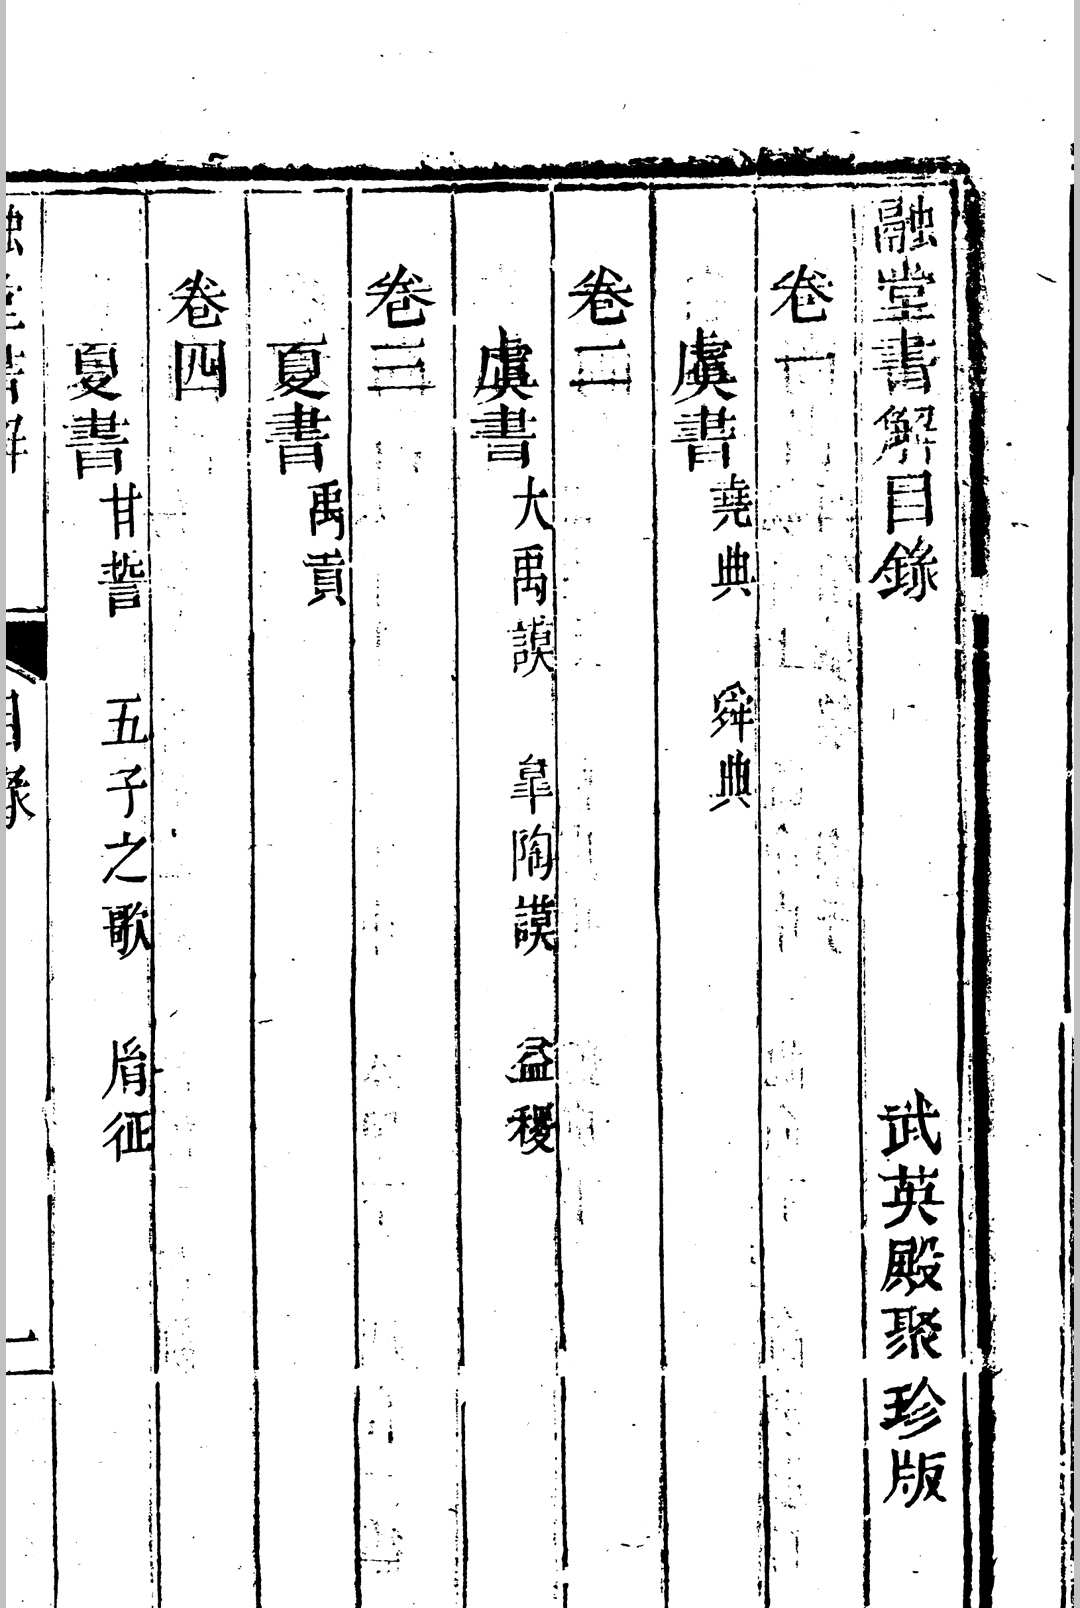 融堂書解目錄
武英殿聚珍版
卷一
虞書堯典 舜典
卷二
虞書大禹謨 臯陶謨 益稷
卷三
夏書禹貢
卷四
夏書甘誓 五子之歌 胤征
融堂書解 目錄 一